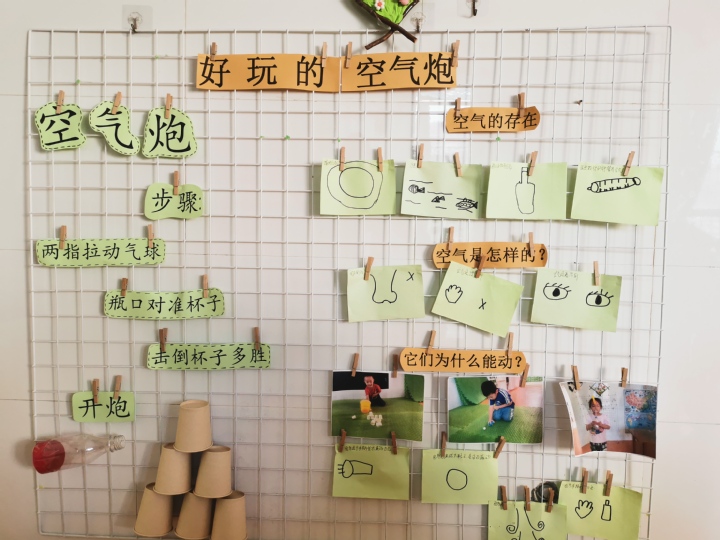 好玩的空气炮
空气炮
步骤:
两指拉动气球
瓶口对准杯子
击倒杯子多胜
开炮
空气的存在
空气是怎样的?
x
x
它们为什么能动?